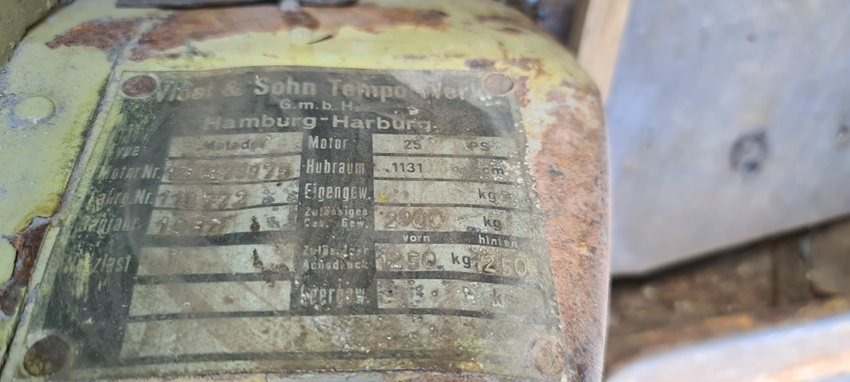 Vidal & Sohn Tempo-Werk
G.m.b.H.
Hamburg-Harburg.
Type: Matador Motor 25 PS
Motor Nr. Hubraum 1131 cm
Fahrg. Nr. Eigengew. kg
Baujahr Zulässiges Ges. Gew. 2900 kg
vorn hinten
Nutzlast Zulässiger Achsdruck 1250 kg 1250
Leergew.